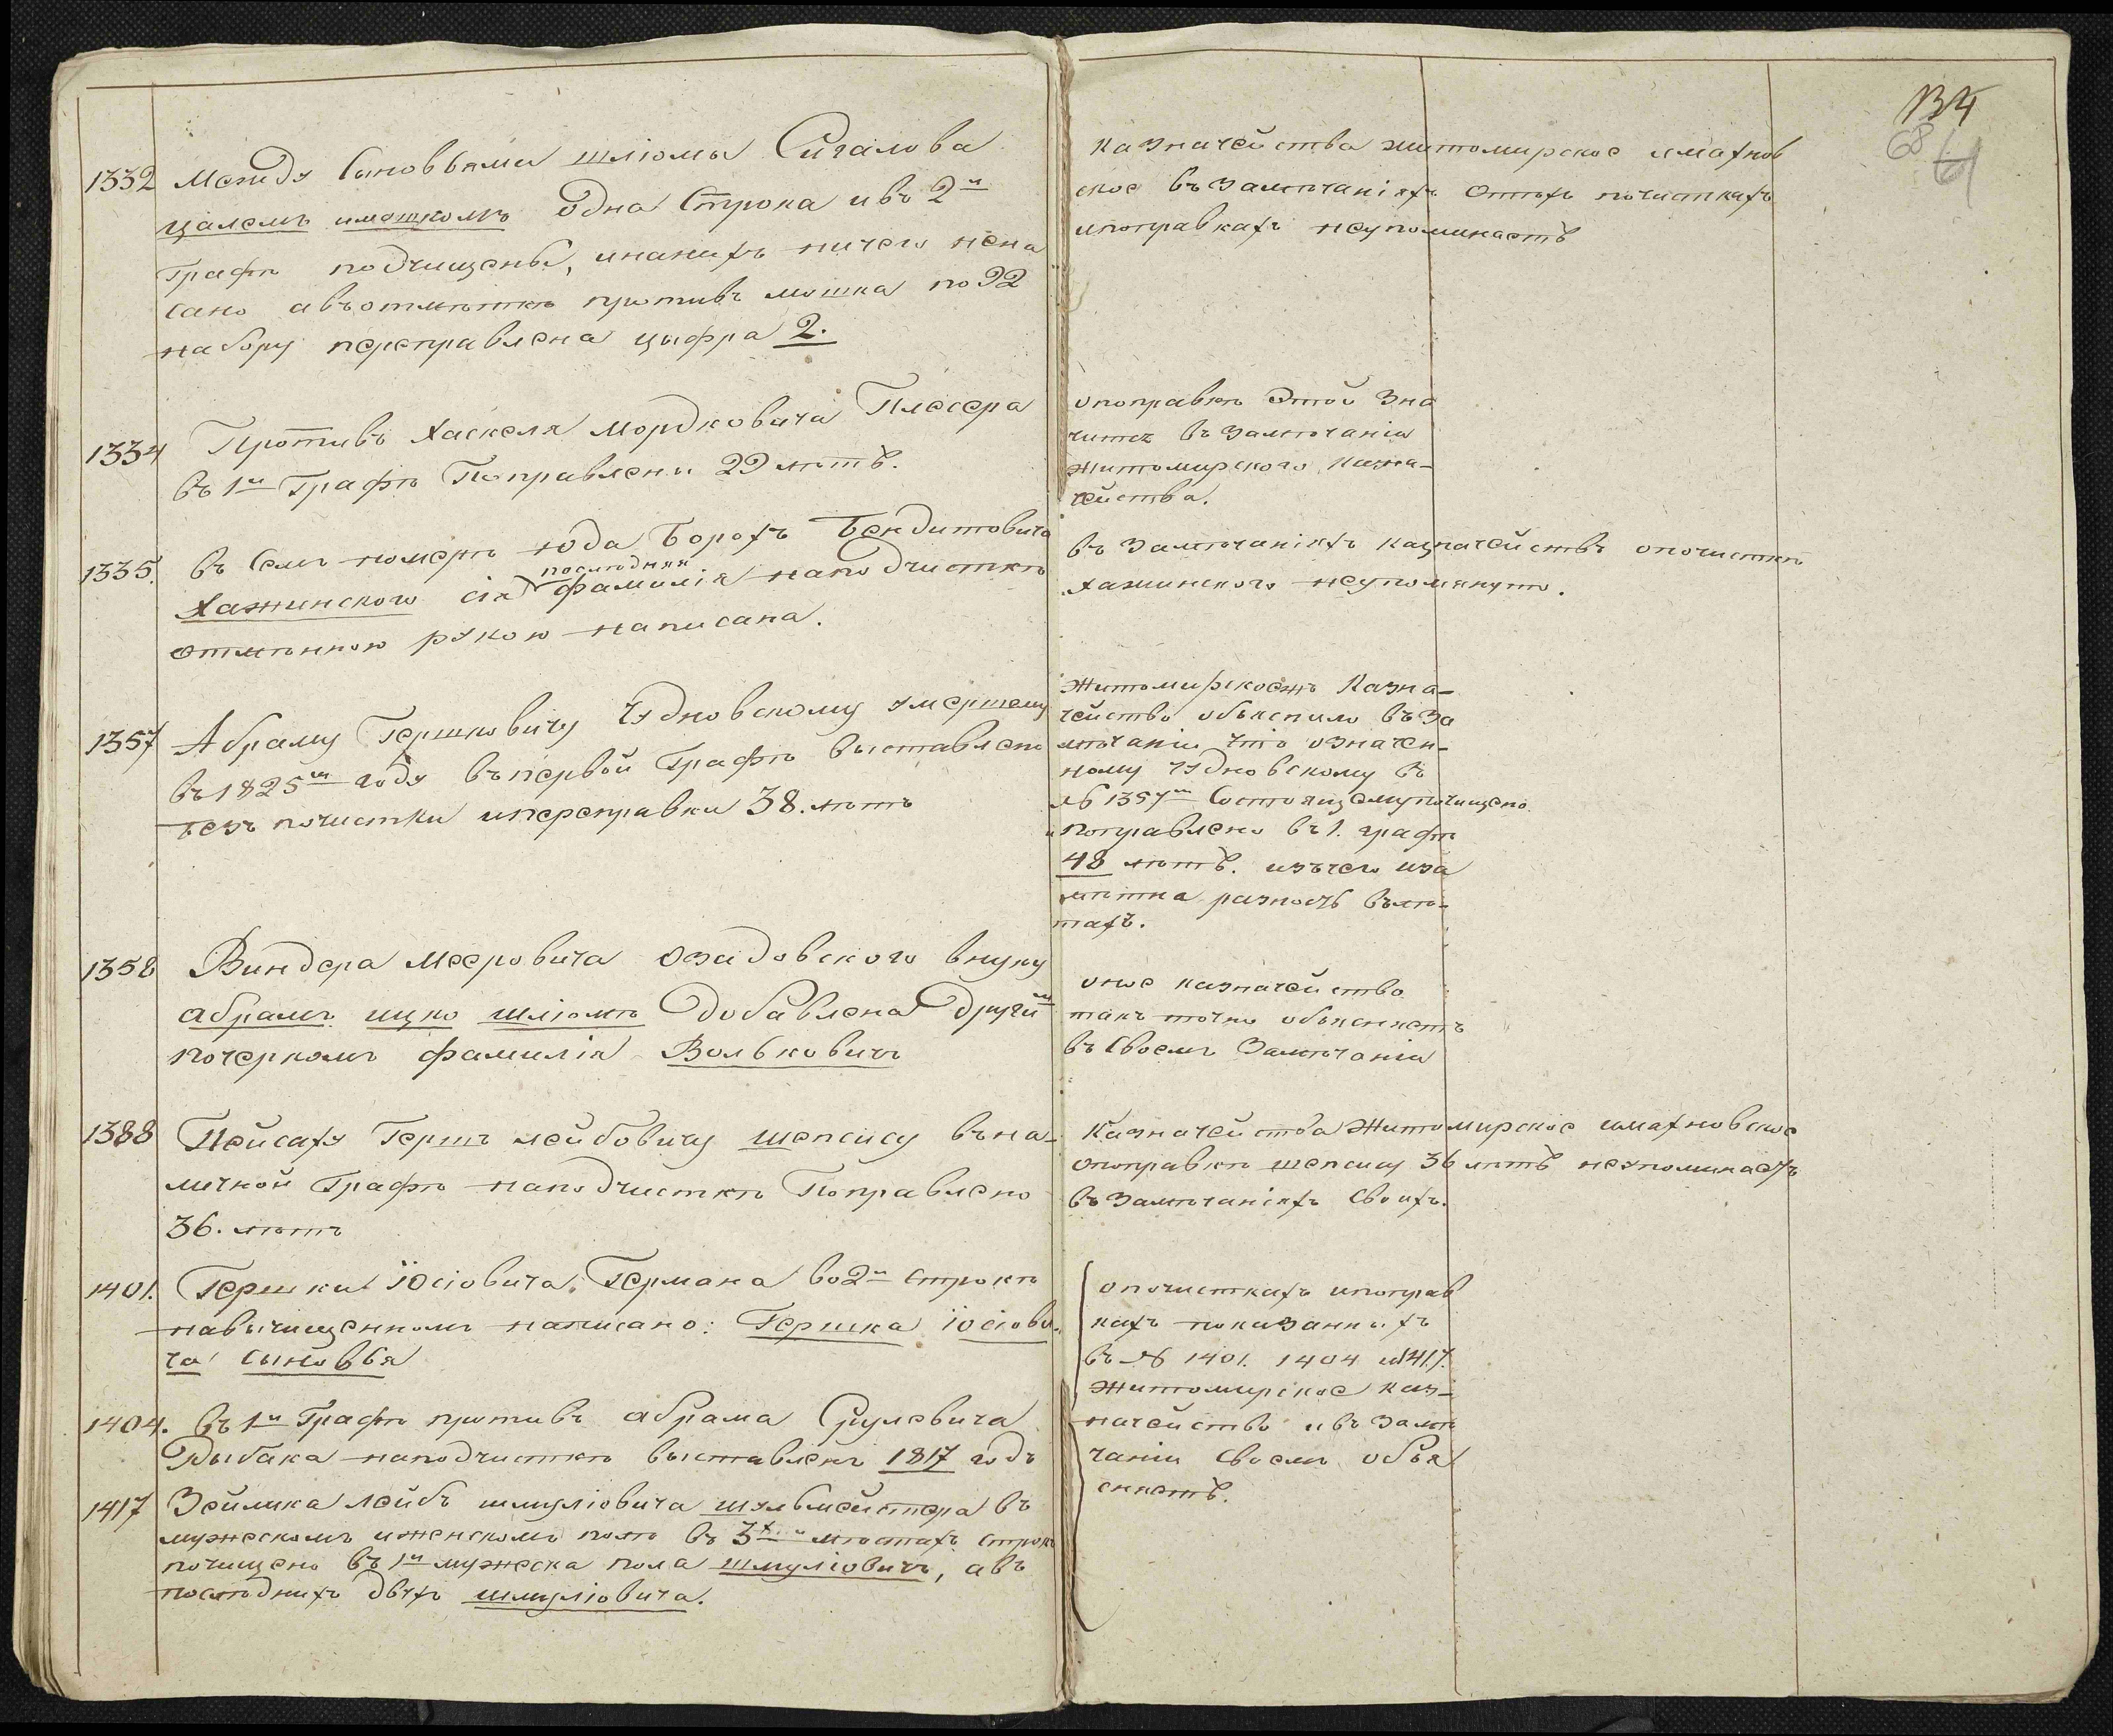 134
68
61
1332 Между Сыновьями шліомы Сигалова
цалемъ имошкомъ одна Строка ивъ 2й
графѣ подчищены, инанихъ ничего нена
сано авъотмѣткѣ противъ мошка по 92
набору переправлена цыфра 2.
1334 Противъ Хаскеля Мордковича Плесера
въ 1й Графѣ Поправлены 29 лѣтъ.
1335. въ семъ номерѣ юда Борохъ Бендитовича
последняя
Хажинского сія фамилія наподчисткѣ
отмѣнною рукою написана.
1357 Абраму Гершковичу Чудновскому умершему
въ 1825м году въпервой Графѣ выставлено
безъ почистки ипереправки 38. лѣтъ
1358 Виндера Меровича Озадовского внуку
абрамъ ицко шліомѣ добавлена другим
почеркомъ фамилія Вольковичъ
1388 Пейсаху Гершъ лейбовичу шепсису въна-
личной Графѣ наподчисткѣ Поправлено
36. лѣтъ
1401. Гершки Іосіовича Германа во2й строкѣ
навычищенномъ написано: Гершка іосіови-
ча сыновья
1404. въ 1й Графѣ противъ абрама Срулевича
Рыбака наподчисткѣ выставленъ 1817 годъ
1417 Зейлика лейбъ шмуліовича шульмейстера въ
мужескомъ иженскомъ полѣ въ 3хъ мѣстахъ строки
почищено въ 1й мужеска пола шмуліовичъ, авъ
последнихъ двухъ шмуліовича.
Казначейства житомирское имахнов
ское въ Замѣчаніяхъ Отѣхъ почисткахъ
ипоправкахъ неупоминаетъ
опоправкѣ Этой Зна
чится въ Замѣчаніи
житомирского Казна-
чейства.
въ Замѣчаніяхъ казначействъ опочисткѣ
Хажинского неупомянуто.
Житомирскоежъ Казна-
чейство объяснило въ За
мѣчаніи что означен-
ному чудновскому въ
№ 1357м Состоящему почищено
и поправлено въ 1. графѣ
48 лѣтъ. изъчего иза
мѣтна разность вълѣ-
тахъ.
оное казначейство
такъ точно объясняетъ
въ своемъ Замѣчаніи
Казначейства Житомирское имахновское
опоправкѣ шепсису 36 лѣтъ неупоминаетъ
въ Замѣчаніяхъ своихъ.
опочисткахъ ипоправ
кахъ показанныхъ
въ № 1401. 1404 и1417.
Житомирское каз-
начейство ивъ Замѣ
чаніи своемъ объя
сняетъ.